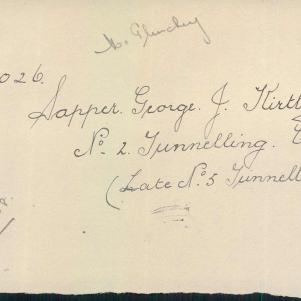 026.
Sapper. George. J. Kirtl
No. 2. Tunnelling.
(Late No. 5 Tunnell